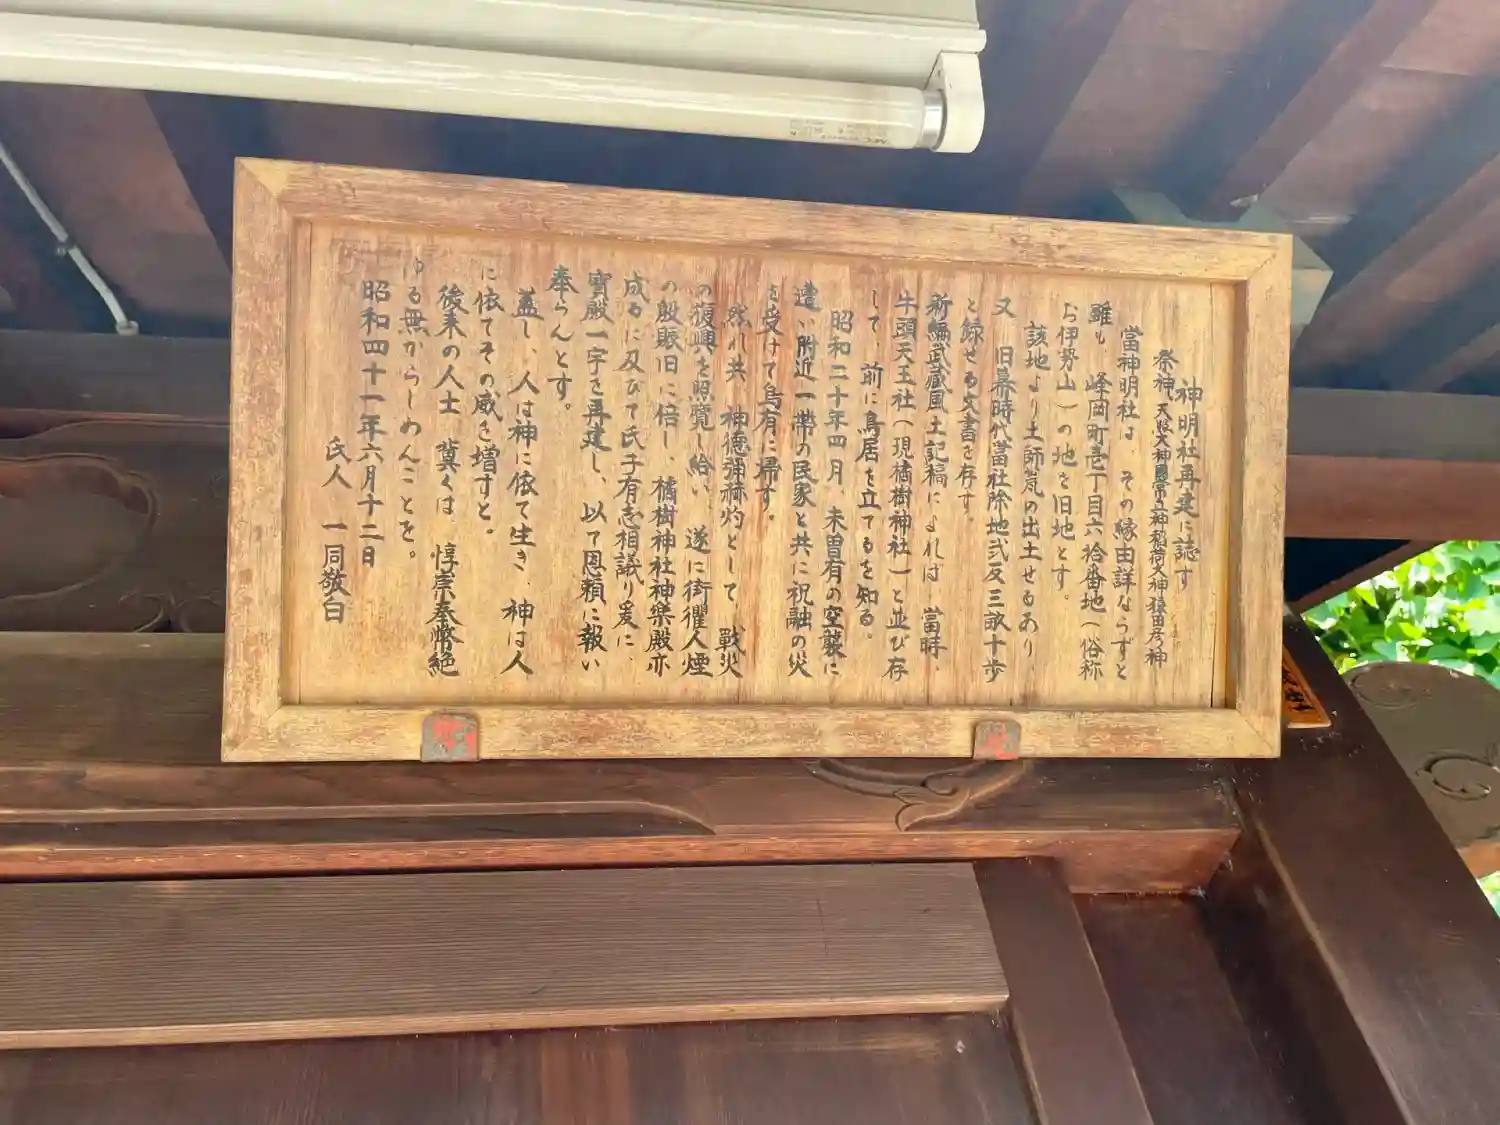 神明社再建に誌す
祭神 天照大神 國常立神 稲荷大神 猿田彦神
當神明社は、その縁由詳ならずと
雖も、峰岡町壱丁目六拾番地(俗称
お伊勢山)の地を旧地とす。
該地より土師器の出土せるあり、
又 旧幕時代當社除地弐反三畝十歩
と録せる文書を存す。
新編武蔵風土記稿によれば、當時、
牛頭天王社(現橘樹神社)と並び存
して、前に鳥居を立てるを知る。
昭和二十年四月、未曽有の空襲に
遭い附近一帯の民家と共に祝融の災
を受けて烏有に帰す。
然れ共 神徳彌赫灼として、戦災
の復興を照覧し給い、遂に街衢人煙
の殷賑旧に倍し、橘樹神社神樂殿亦
成るに及びて氏子有志相議り爰に、
寳殿一宇を再建し、以て恩頼に報い
奉らんとす。
蓋し、人は神に依て生き、神は人
に依てその威を増すと。
後来の人士、冀くは、惇崇奉幣絶
ゆる無からしめんことを。
昭和四十一年六月十二日
氏人 一同敬白